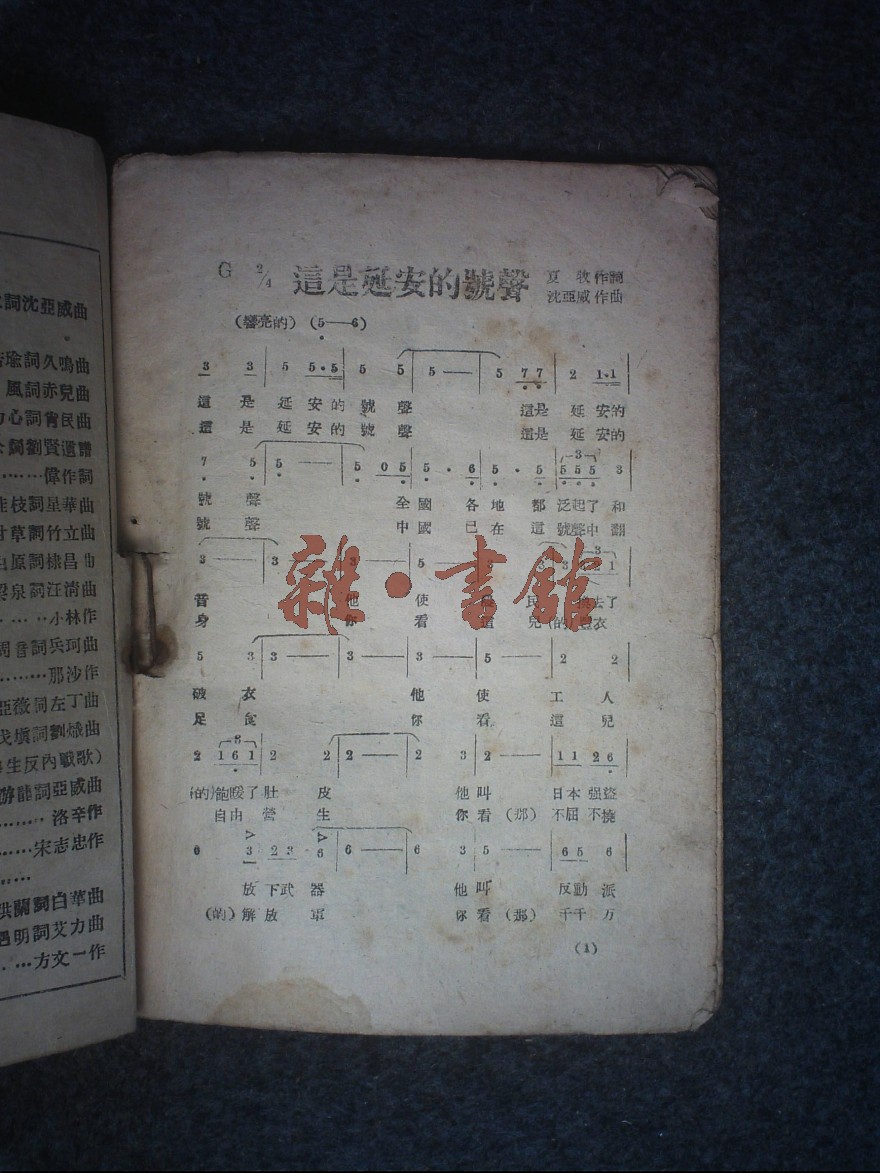 詞沈亞威曲
瑜詞久鳴曲
風詞赤兒曲
心詞胄民曲
詞劉賢遺譜
………偉作詞
枝詞星華曲
草詞竹立曲
原詞棣昌曲
泉詞汪淸曲
……小林作
音詞兵珂曲
………那沙作
薇詞左丁曲
塡詞劉熾曲
生反內戰歌)
詞亞威曲
………洛辛作
……宋志忠作
………
蘭詞白華曲
明詞艾力曲
……方文一作
G 2/4 這是延安的號聲 夏牧作詞
沈亞威作曲
(響亮的) (5——6)
3 3 | 5 5·5 | 5 5 | 5 — | 5 7 7 | 2 1·1 |
這 是 延 安 的 號 聲 這是 延 安的
這 是 延 安 的 號 聲 這是 延 安的
7 5 | 5 — | 5 0 5 | 5 · 6 | 5 · 5 | 5 5 5 3 |
號 聲 全 國 各 地 都 泛起了 和
號 聲 中 國 已 在 這 號聲中 翻
雜·書館
昔 他 使 民 去了
身 你 看 這 兒(的) 衣
5 3 | 3 — | 3 — | 3 — | 5 — | 2 2
破 衣 他 使 工 人
足 食 你 看 這 兒
2 1 6 1 | 2 2 | 2 — | 2 3 | 2 — | 1 1 2 6 |
(的)飽暖了 肚 皮 他 叫 日本 强盜
自由 營 生 你 看 (那) 不屈 不撓
0 3 | 2 3 6 | 6 — | 6 3 | 5 — | 6 5 6 |
放 下武 器 他 叫 反動 派
(的) 解 放 軍 你 看 (那) 千千 万
(1)